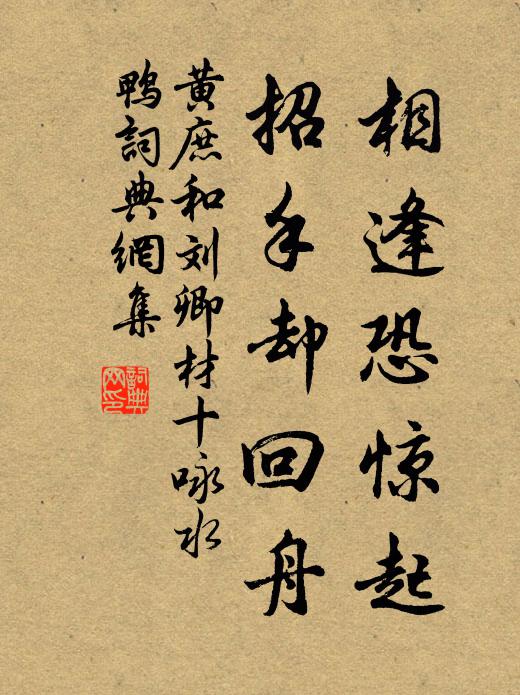 相逢恐惊起
招手却回舟
黄庶和刘卿材十咏水
鸭词典網集
詞典
网印